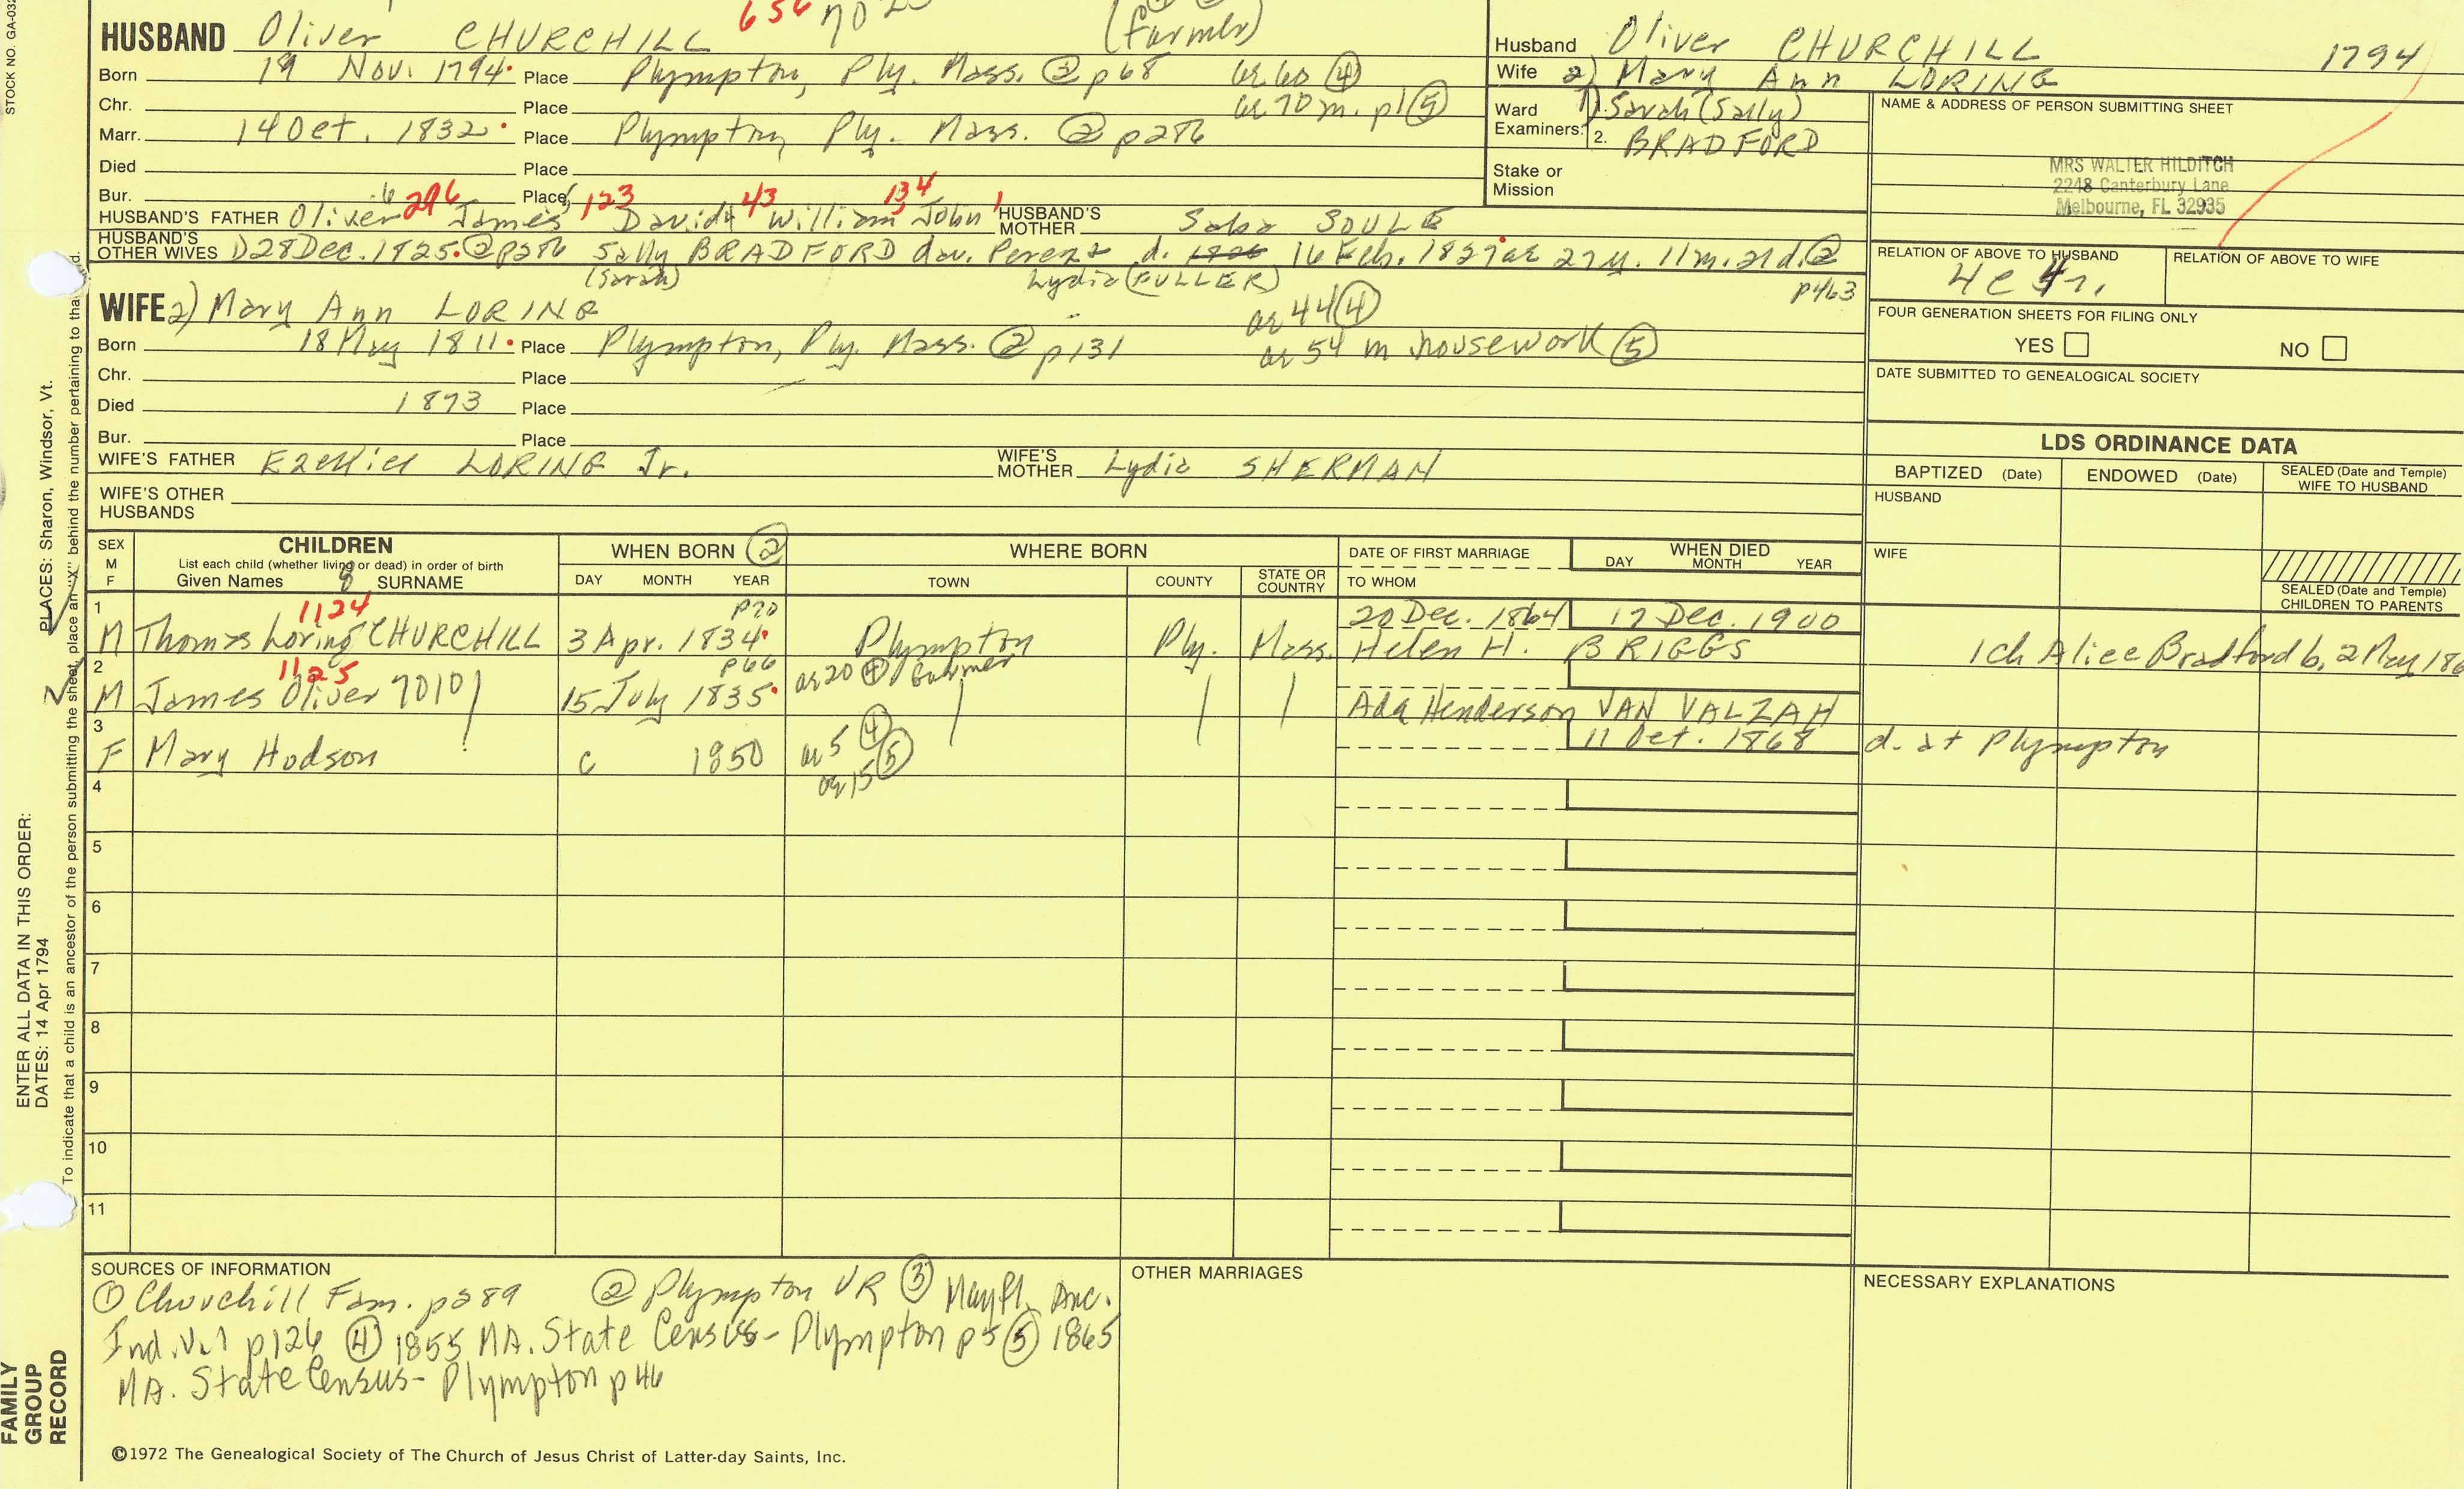 STOCK NO. GA-032
656 70
HUSBAND Oliver CHURCHILL (farmer)
Born 19 Nov. 1794. Place Plympton, Ply. Mass. ② p68 ae 60 ④
Chr. Place ae 70 m. p1 ⑤
Marr. 14 Oct. 1832. Place Plympton, Ply. Mass. ② p286
Died Place
Bur. Place
6 296 5 123 4 43 134 1
HUSBAND'S FATHER Oliver James David William John HUSBAND'S MOTHER Saba SOULE
HUSBAND'S OTHER WIVES 1) 28 Dec. 1825. ② p286 Sally BRADFORD dau. Perez & d. 1826 16 Feb. 1827 ae 27 y. 11 m. 21 d. ②
(Sarah) Lydia (FULLER) p463
WIFE 2) Mary Ann LORING ae 44 ④
Born 18 May 1811. Place Plympton, Ply. Mass. ② p131 ae 54 m housework ⑤
Chr. Place
Died 1873 Place
Bur. Place
WIFE'S FATHER Ezekiel LORING Jr. WIFE'S MOTHER Lydia SHERMAN
WIFE'S OTHER HUSBANDS
Husband Oliver CHURCHILL 1794
Wife 2) Mary Ann LORING
Ward 1) Sarah (Sally)
Examiners: 2. BRADFORD
Stake or Mission
NAME & ADDRESS OF PERSON SUBMITTING SHEET
MRS WALTER HILDITCH
2248 Canterbury Lane
Melbourne, FL 32935
RELATION OF ABOVE TO HUSBAND RELATION OF ABOVE TO WIFE
4c 4r.
FOUR GENERATION SHEETS FOR FILING ONLY
YES NO
DATE SUBMITTED TO GENEALOGICAL SOCIETY
LDS ORDINANCE DATA
BAPTIZED (Date) ENDOWED (Date) SEALED (Date and Temple) WIFE TO HUSBAND
HUSBAND
WIFE
SEALED (Date and Temple) CHILDREN TO PARENTS
SEX M F
CHILDREN
List each child (whether living or dead) in order of birth
Given Names 8 SURNAME
WHEN BORN ②
DAY MONTH YEAR
WHERE BORN
TOWN COUNTY STATE OR COUNTRY
DATE OF FIRST MARRIAGE
TO WHOM
WHEN DIED
DAY MONTH YEAR
1 1124 p70 20 Dec. 1864 17 Dec. 1900
M Thomas Loring CHURCHILL 3 Apr. 1834. Plympton Ply. Mass. Helen H. BRIGGS 1 ch Alice Bradford b. 2 May 186
2 1125 p66 ae 20 ④ farmer
M James Oliver 7010 15 July 1835. Ada Henderson VAN VALZAH
3 ae 5 ④ 11 Oct. 1868 d. at Plympton
F Mary Hudson c 1850 ae 15 ⑤
4
5
6
7
8
9
10
11
SOURCES OF INFORMATION
① Churchill Fam. p289 ② Plympton VR ③ Mayfl. Anc.
Ind. Vol p126 ④ 1855 MA. State Census- Plympton p5 ⑤ 1865
MA. State Census- Plympton p46
OTHER MARRIAGES
NECESSARY EXPLANATIONS
©1972 The Genealogical Society of The Church of Jesus Christ of Latter-day Saints, Inc.
ENTER ALL DATA IN THIS ORDER:
DATES: 14 Apr 1794 PLACES: Sharon, Windsor, Vt.
To indicate that a child is an ancestor of the person submitting the sheet, place an "X" behind the number pertaining to that
FAMILY
GROUP
RECORD